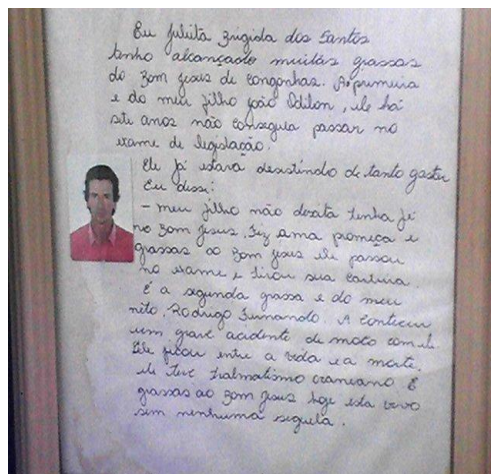 Eu Julita Brigida dos Santos
tenho alcançado muitas grassas
do Bom Jesus de Congonhas. A primeira
e do meu filho João Odilon, ele há
sete anos não conseguia passar no
exame de legislação.
Ele já estava desistindo de tanto gastar
Eu disse:
- Meu filho não desista tenha fé
no Bom Jesus. Fez uma promeça e
grassas ao Bom Jesus ele passou
no exame e tirou sua carteira.
E a segunda grassa e do meu
neto, Rodrigo Fernando. Aconteceu
um grave acidente de moto com ele.
Ele ficou entre a vida e a morte,
ele teve tralmatismo craneano E
grassas ao Bom Jesus hoje esta vivo
sem nenhuma sequela.